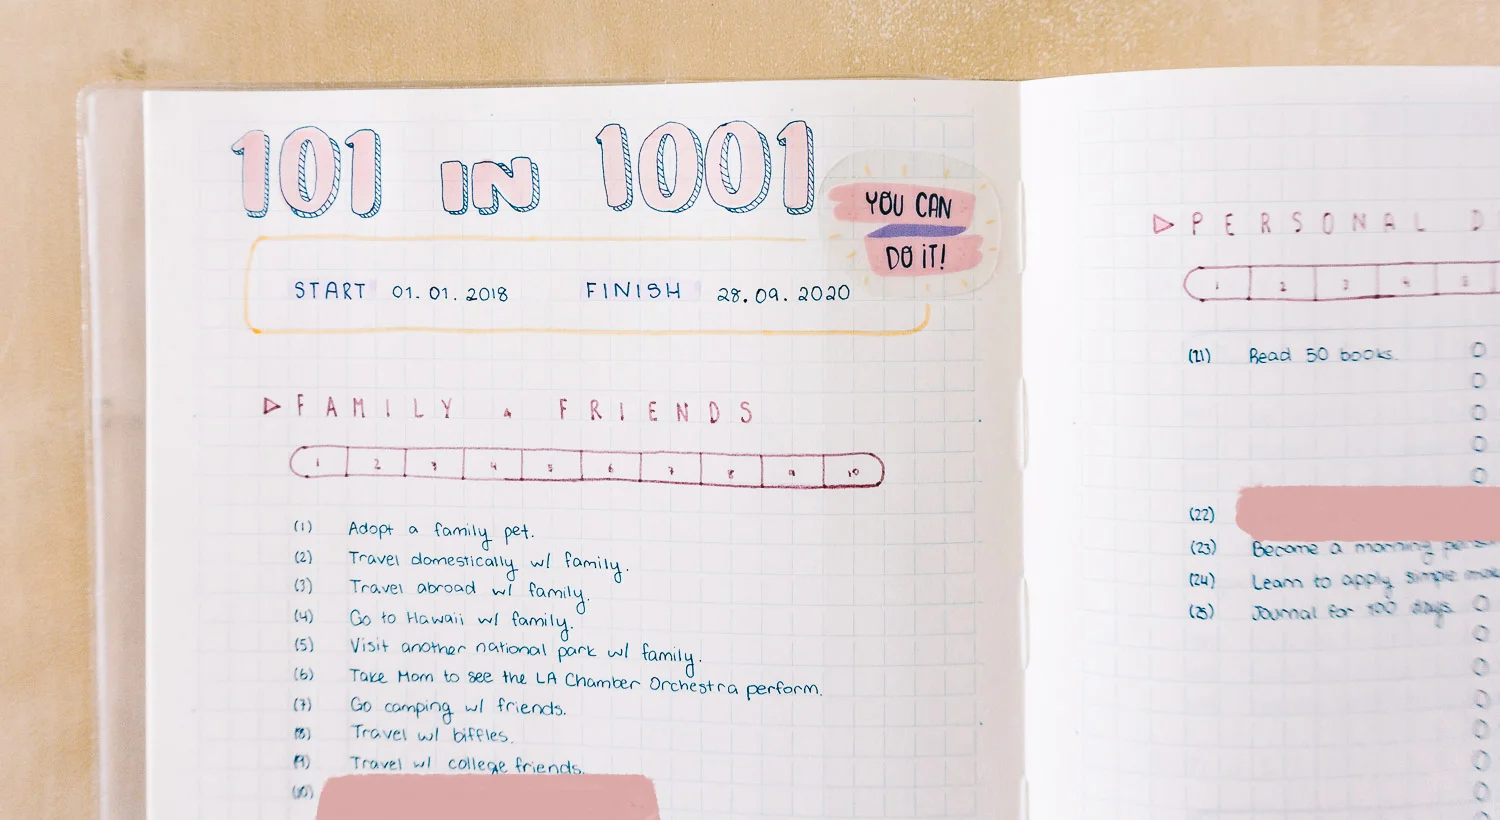 101 IN 1001
YOU CAN
DO IT!
START 01.01.2018 FINISH 28.09.2020
FAMILY & FRIENDS
1 2 3 4 5 6 7 8 9 10
(1) Adopt a family pet.
(2) Travel domestically w/ family.
(3) Travel abroad w/ family.
(4) Go to Hawaii w/ family.
(5) Visit another national park w/ family.
(6) Take Mom to see the LA Chamber Orchestra perform.
(7) Go camping w/ friends.
(8) Travel w/ biffles.
(9) Travel w/ college friends.
(10)
PERSONAL D
1 2 3 4 5
(21) Read 50 books.
(22)
(23) Become a morning
(24) Learn to apply simple
(25) Journal for 100 days.